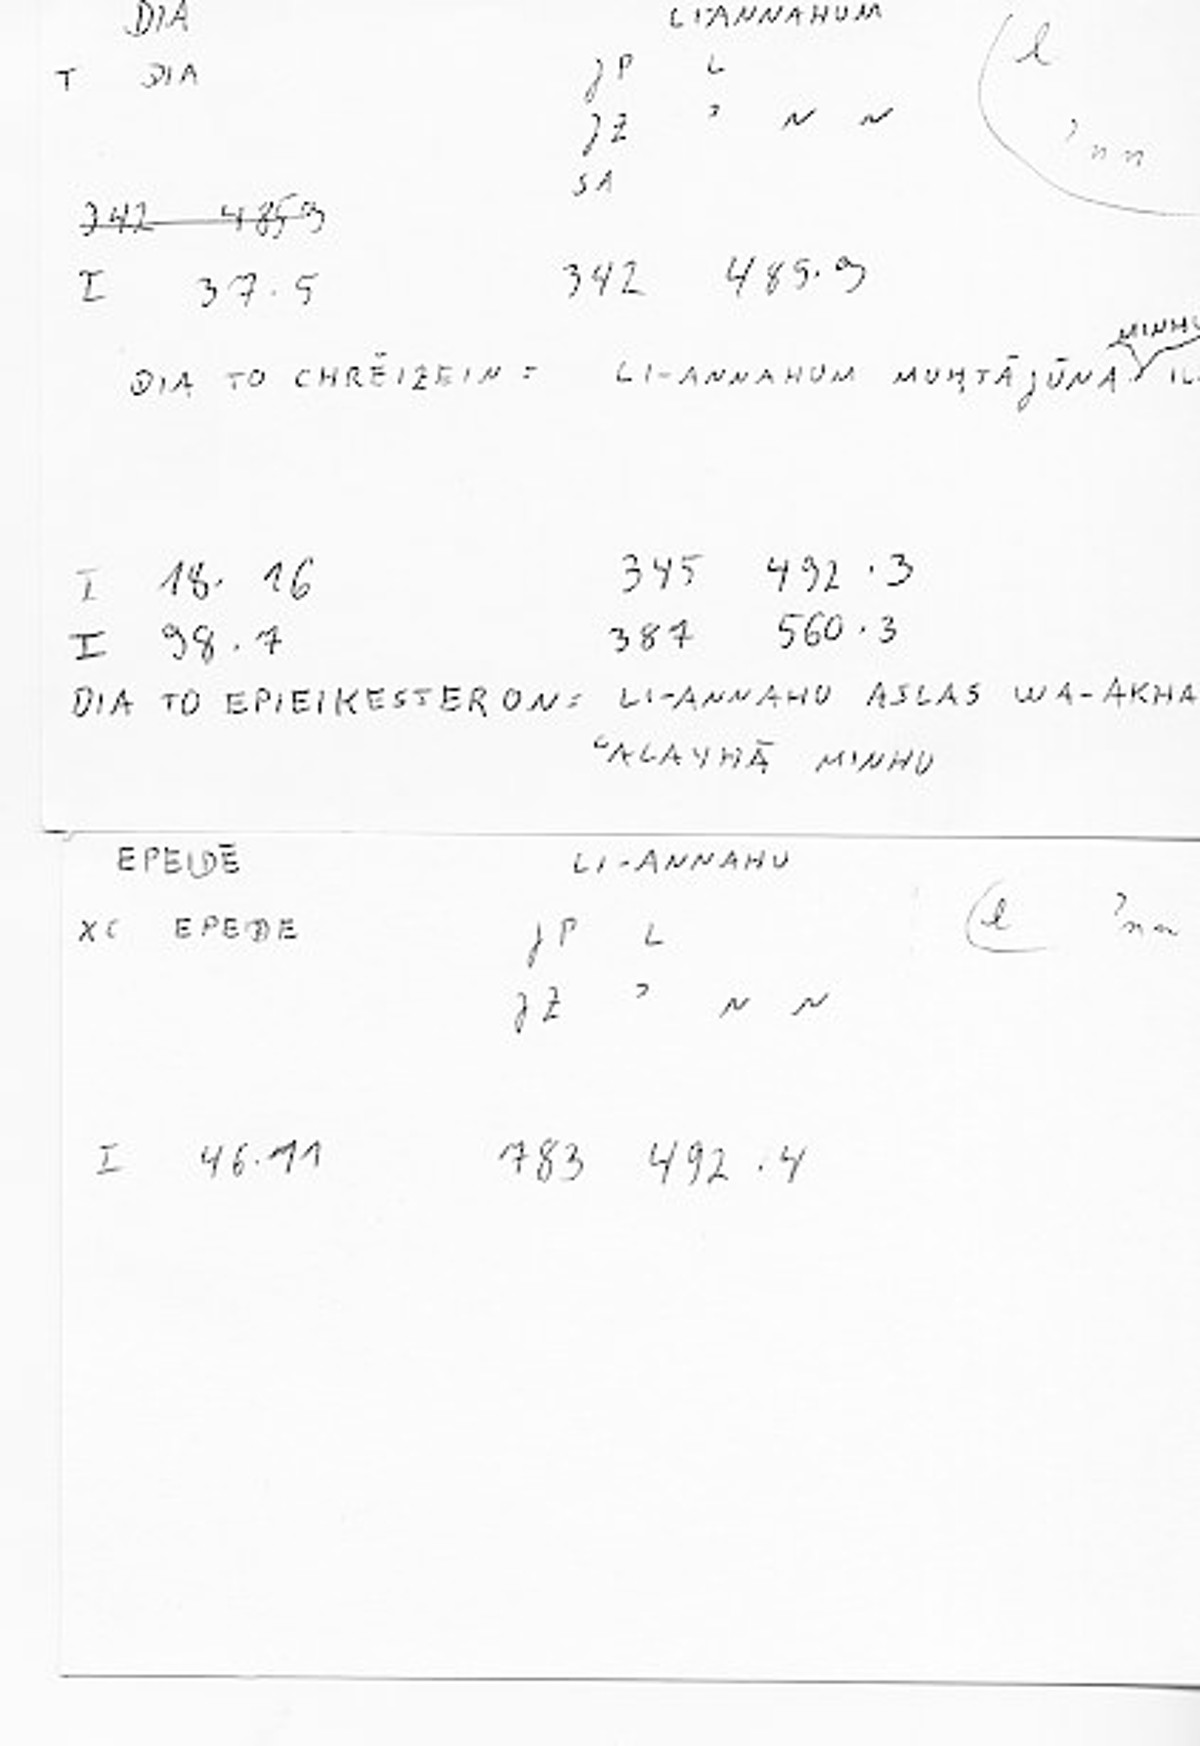 DIA LI-ANNAHUM
T DIA JP L (l
JZ ʾ N N ʾnn
SA
342 485.9
I 37.5 342 485.9
MINHU
DIA TO CHRĒIZEIN = LI-ANNAHUM MUḤTĀJŪNA
I 18. 16 345 492.3
I 98.7 387 560.3
DIA TO EPIEIKESTERON = LI-ANNAHU ASLAS WA-AKHA
ʿALAYHĀ MINHU
EPEIDĒ LI-ANNAHU
XC EPEDE JP L (l ʾnn
JZ ʾ N N
I 46.11 783 492.4